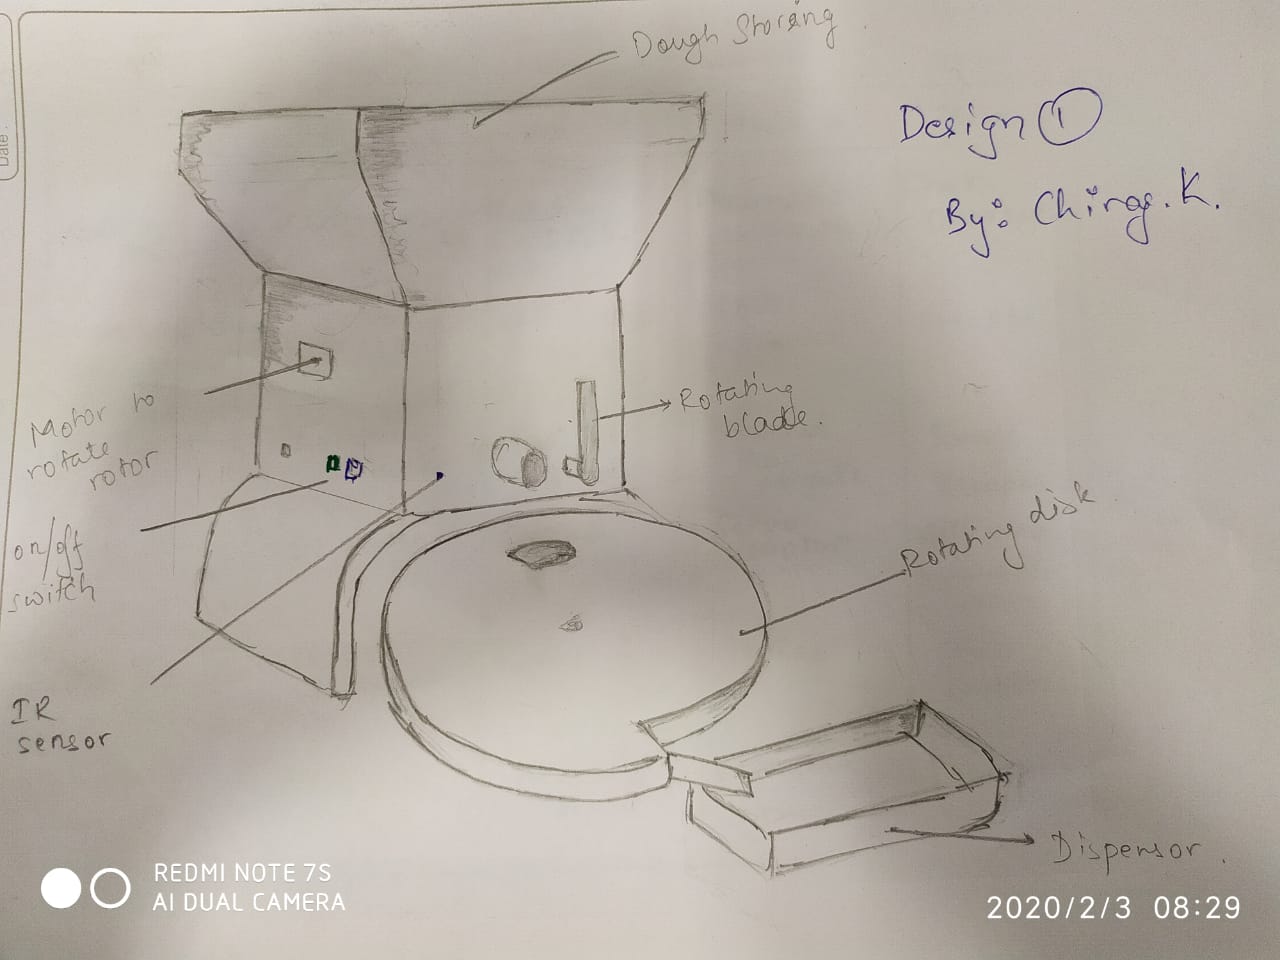 Date :
Dough Storing
Design ①
By: Chirag. K.
Motor to
rotate
rotor
Rotating
blade.
on/off
switch
Rotating disk
IR
sensor
Dispensor.
REDMI NOTE 7S
AI DUAL CAMERA
2020/2/3 08:29